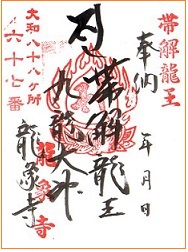 帯解龍王
奉納
年月日
帯解龍王
九龍大神
龍象寺
大和八十八ヶ所
六十七番